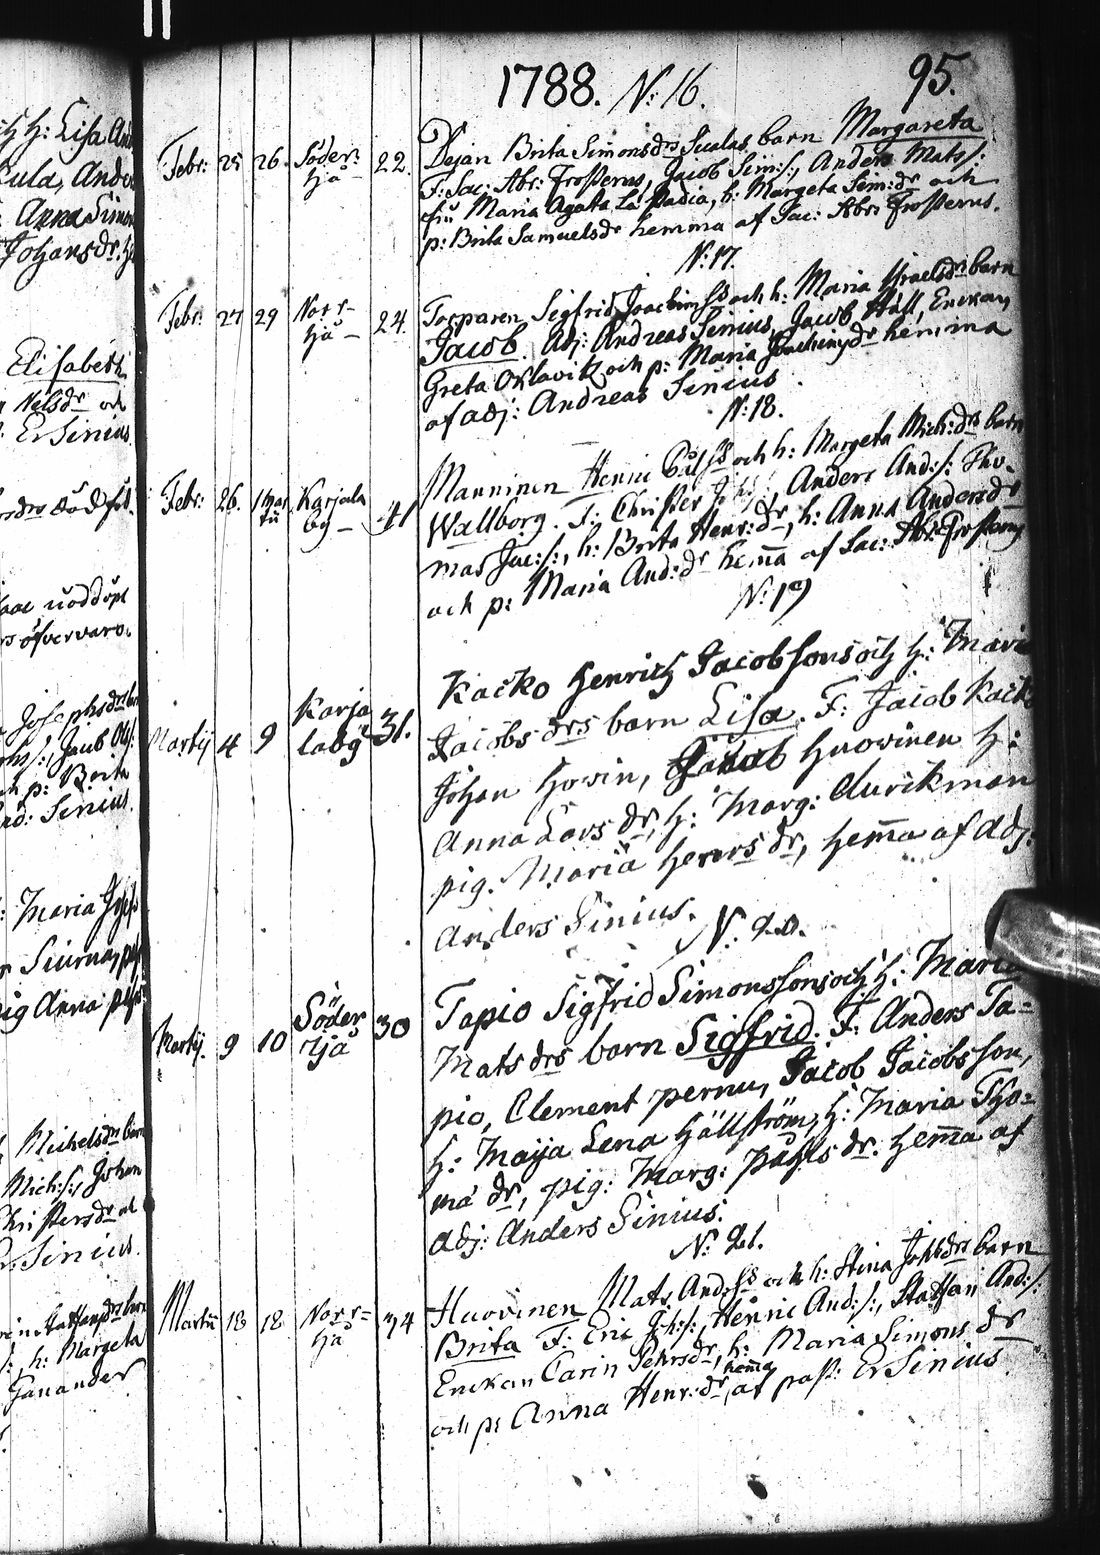 h: Lisa And
cula, Ande
Anna Simon
Johansdr. h
Elisabeth
Nilsdr och
Er Sinius
död föd.
nöddöpt
öfvervaro.
Josephsdrs
Jacob
p: Brita
Sinius.
Maria Jos
Siurna, p
pig Anna
Michelsdrs barn
Mich:s:, Johan
Christersdr och
Er. Sinius.
Staffansdrs barn
h: Margeta
Ganander
1788. N: 16. 95.
Febr: 25 26. Söder- hjå 22. Pejan Brita Simonsdrs Sualas barn Margareta
F: Sac: Abr: Frosterus, Jacob Sim:s:, Anders Mats:s:
fru Maria Agata La Padia, h: Margeta Sim:dr och
p: Brita Samuelsdr hemma af Sac: Abr: Frosterus.
N: 17.
Febr: 27 29 Norr- hjå 24 Torparen Sigfrid Joachimss och h: Maria Israelsdrs barn
Jacob. Adj: Andreas Sinius, Jacob Häll, Enckan
Greta Orlavitz och p: Maria Joachimsdr hemma
af adj: Andreas Sinius.
N: 18.
Febr: 26. 1 Martii Karjala by 41 Manninen Henric Pålss och h: Margeta Mich:drs barn
Wallborg. F: Christer Joh:s:, Anders And:s: Tho-
mas Jac:s:, h: Brita Henr:dr, h: Anna Andersdr
och p: Maria And:dr hem̅a af Sac: Abr: Frosterus
N: 19
Martij 4 9 Karja laby 31. Kacko Henrich Jacobsons och h: Maria
Jacobs drs barn Lisa. F: Jacob Kack
Johan Hovin, Jacob Huovinen h:
Anna Lars dr, h: Marg: Aurikman
pig. Maria Henrs dr, hem̅a af adj:
Anders Sinius.
N: 20.
Martij. 9 10 Söder hjå 30 Tapio Sigfrid Simonssons och h: Maria
Mats drs barn Sigfrid. F: Anders Ta-
pio, Clement Pernu, Jacob Jacobsson,
h: Maija Lena Hällström, h: Maria Tho-
ma dr, pig: Marg: Påhls dr. hem̅a af
adj: Anders Sinius.
N: 21.
Martii 13 18 Norr- hjå 34 Huovinen Mats And:ss och h: Stina Johsdrs barn
Brita F: Eric Joh:s:, Henric And:s:, Staffan And:s:
Enckan Carin Pehrsdr, h: Maria Simons dr
och p: Anna Henr:dr, hem̅a af past: Er Sinius